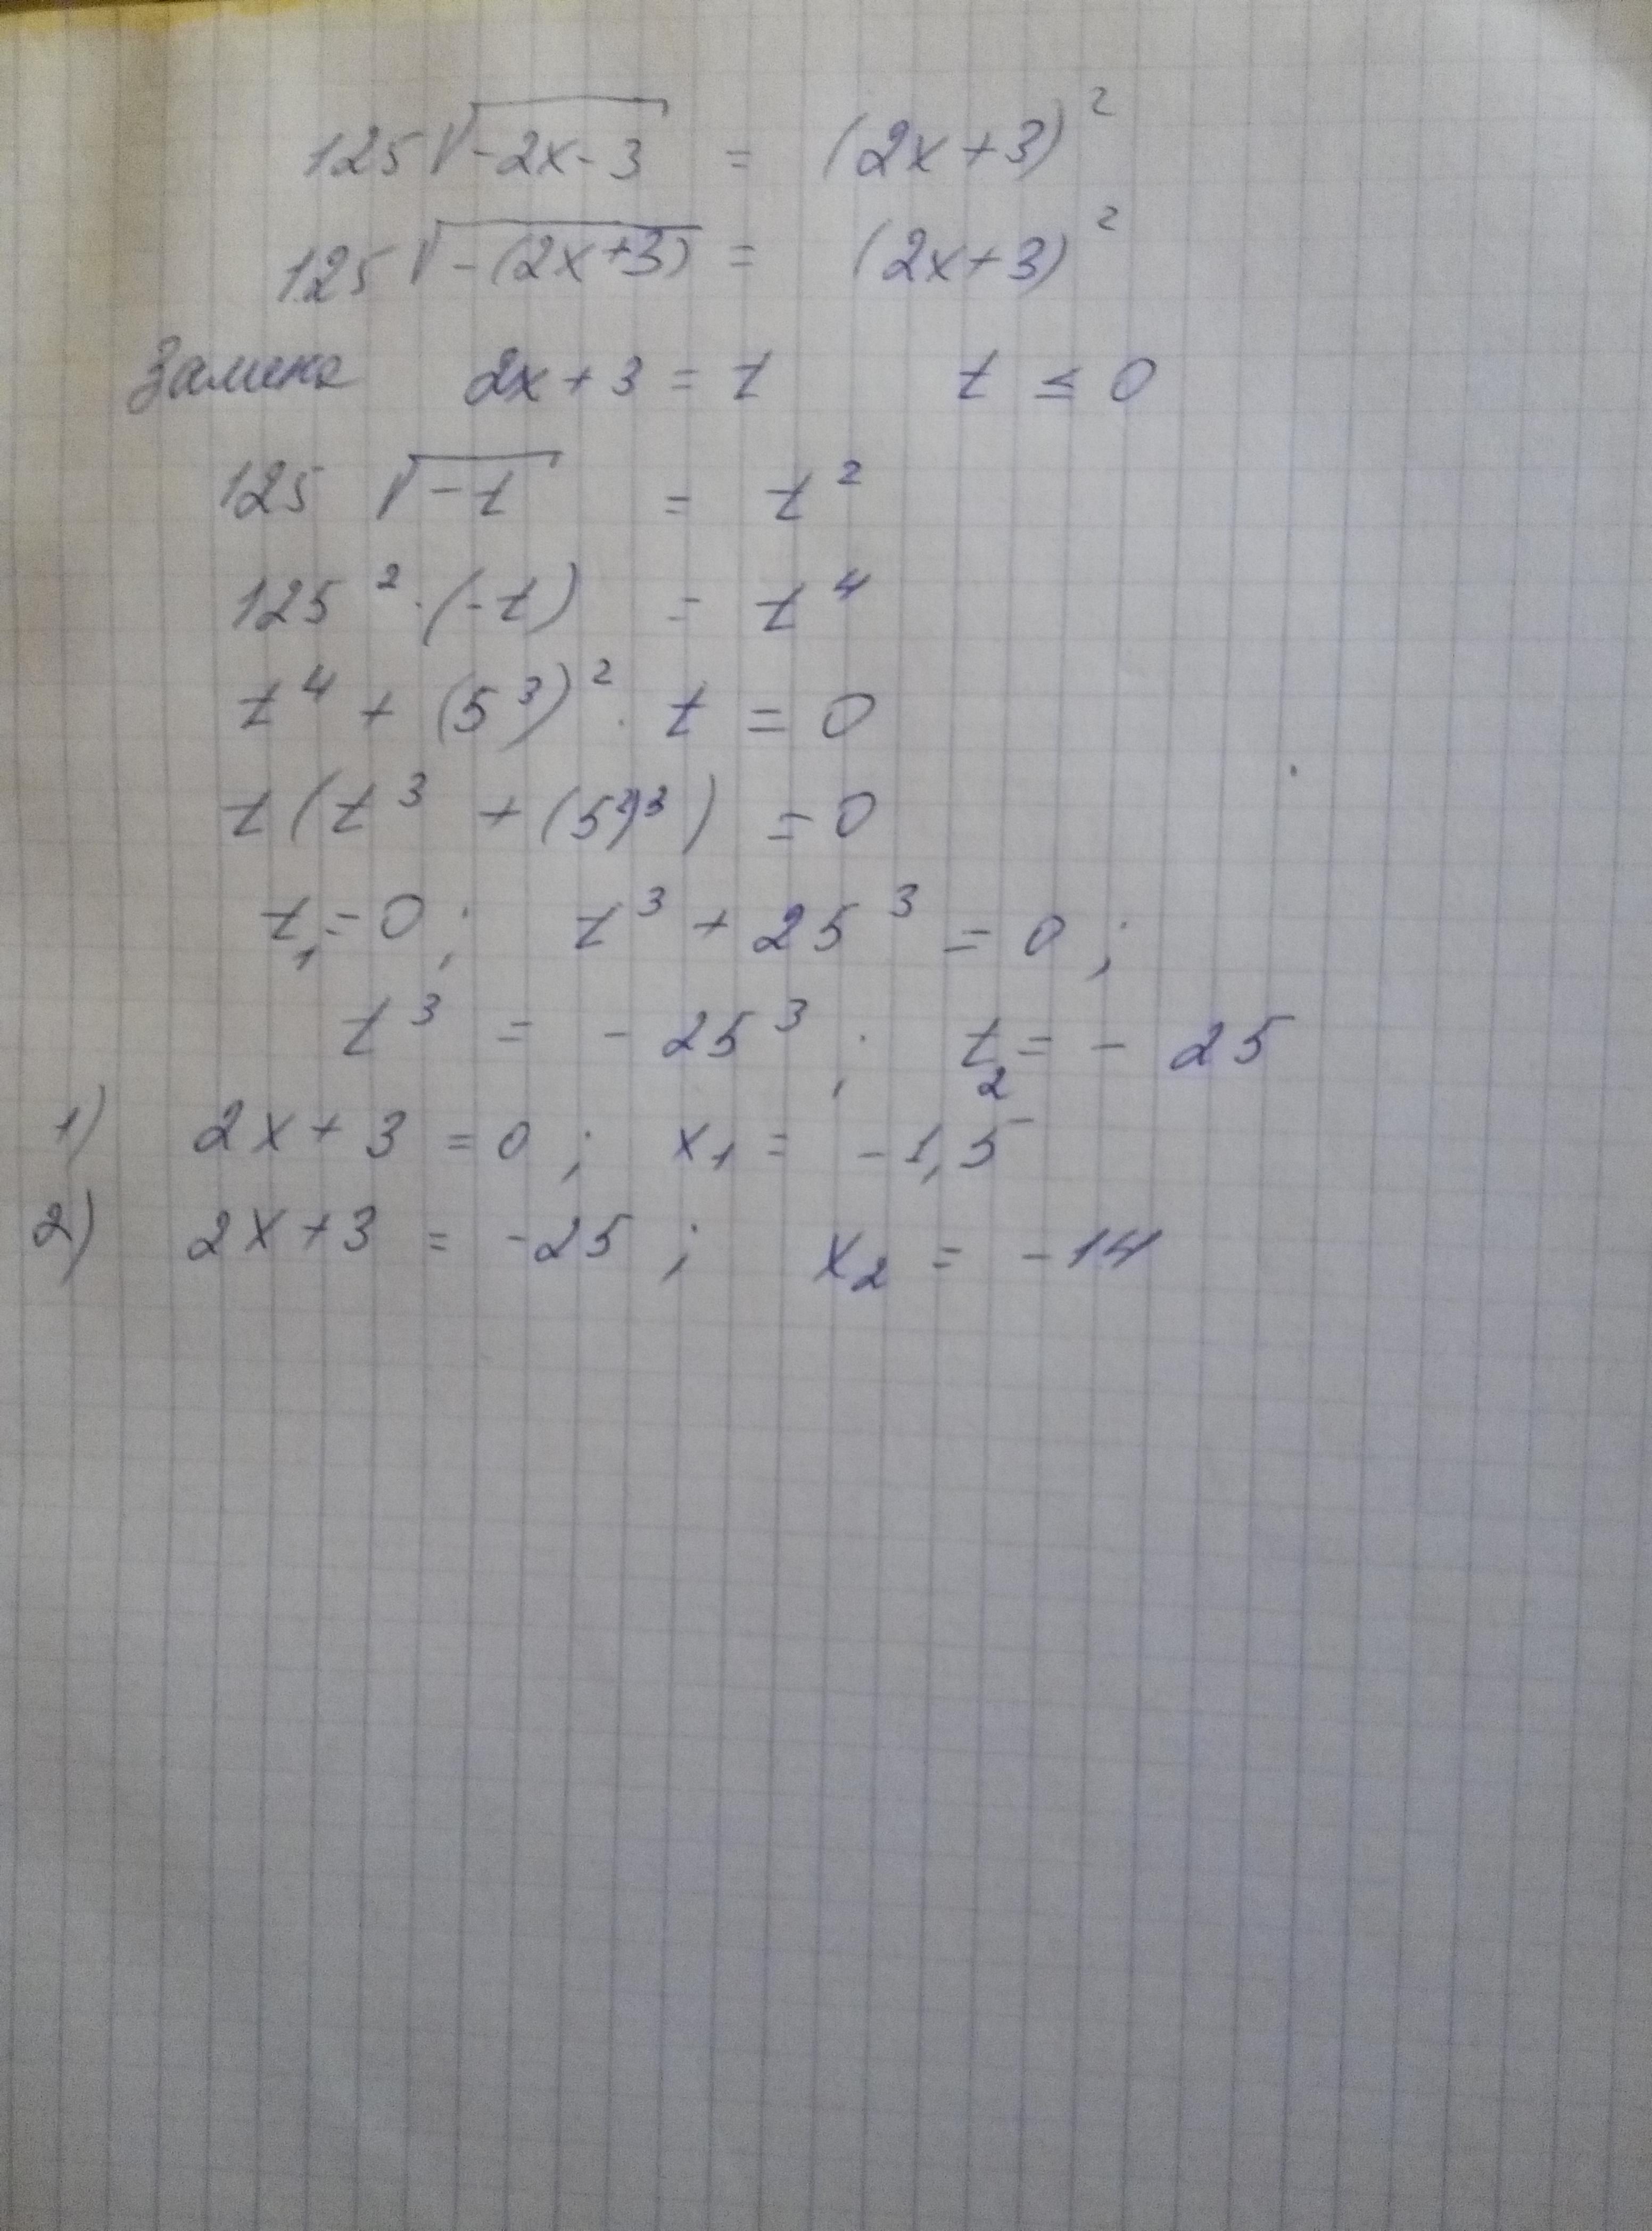 125√-2x-3 = (2x+3)²
125√-(2x+3) = (2x+3)²
Замена 2x+3 = t t ≤ 0
125 √-t = t²
125²·(-t) = t⁴
t⁴ + (5³)²·t = 0
t(t³ + (5²)³) = 0
t₁=0; t³ + 25³ = 0;
t³ = -25³; t₂ = -25
1) 2x+3 = 0; x₁ = -1,5
2) 2x+3 = -25; x₂ = -14